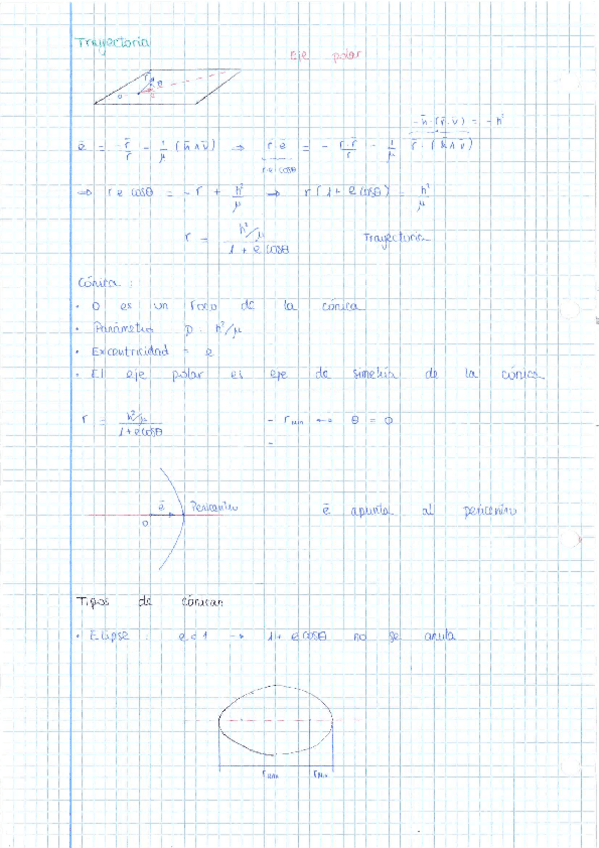 Trayectoria
eje polar
r θ
O e
-h̄·(r̄∧v̄) = -h²
ē = -r̄/r - 1/μ (h̄∧v̄) ⇒ r̄·ē = -r̄·r̄/r - 1/μ r̄·(h̄∧v̄)
r·e·cosθ
⇒ r e cosθ = -r + h²/μ ⇒ r(1+e cosθ) = h²/μ
r = h²/μ / 1+e cosθ Trayectoria
Cónica:
· O es un foco de la cónica
· Parámetro p = h²/μ
· Excentricidad = e
· El eje polar es eje de simetría de la cónica
r = h²/μ / 1+e cosθ - r min ↔ θ = 0
-
ē Pericentro ē apunta al pericentro
O
Tipos de cónicas:
· Elipse: e<1 → 1+ e cosθ no se anula